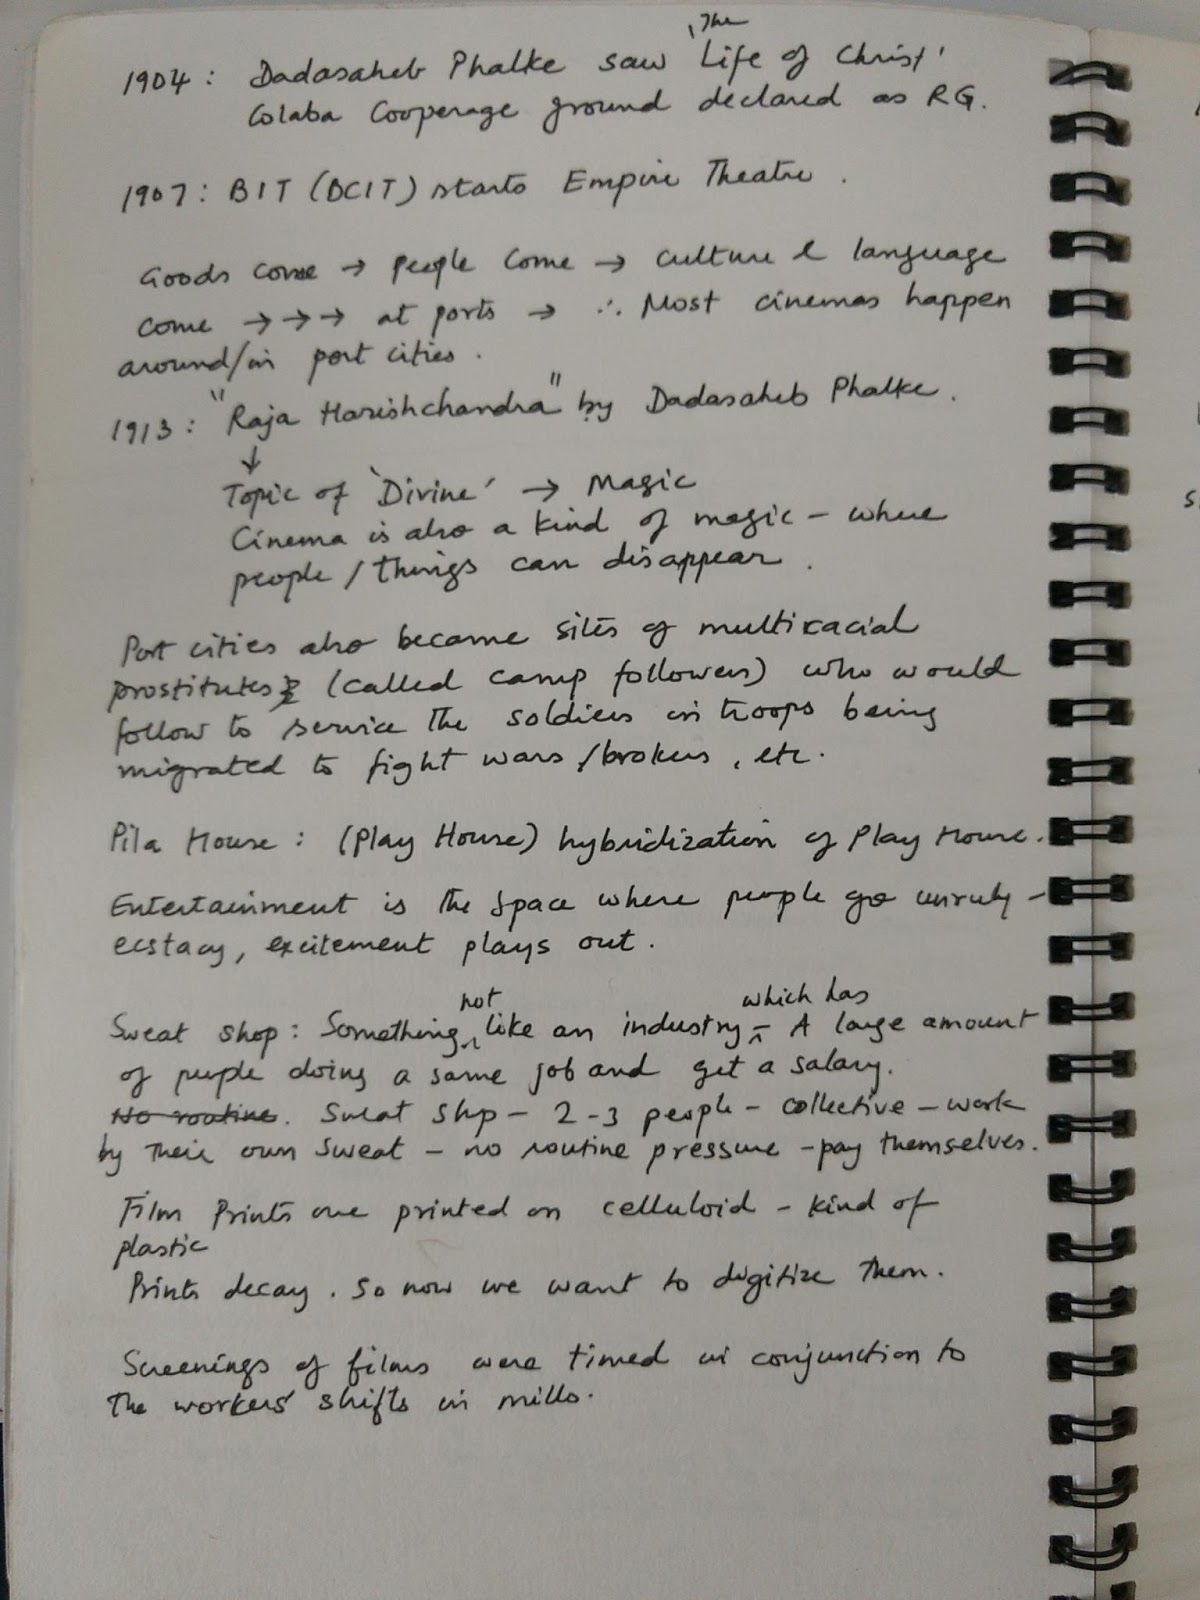 1904 : Dadasaheb Phalke saw 'The Life of Christ'
Colaba Cooperage ground declared as RG.
1907 : BIT (BCIT) starts Empire Theatre.
Goods come → people come → culture & language
come →→→ at ports → ∴ Most cinemas happen
around/in port cities.
1913 : "Raja Harishchandra" by Dadasaheb Phalke.
↓
Topic of 'Divine' → Magic
Cinema is also a kind of magic – where
people / things can disappear.
Port cities also became sites of multiracial
prostitutes (called camp followers) who would
follow to service the soldiers in troops being
migrated to fight wars /brokers, etc.
Pila House : (Play House) hybridization of Play House.
Entertainment is the space where people go unruly –
ecstacy, excitement plays out.
Sweat shop : Something not like an industry – which has A large amount
of people doing a same job and get a salary.
No routine. Sweat shp – 2-3 people – collective – work
by their own sweat – no routine pressure – pay themselves.
Film Prints are printed on celluloid – kind of
plastic
Prints decay. So now we want to digitize them.
Screenings of films were timed in conjunction to
the workers' shifts in mills.